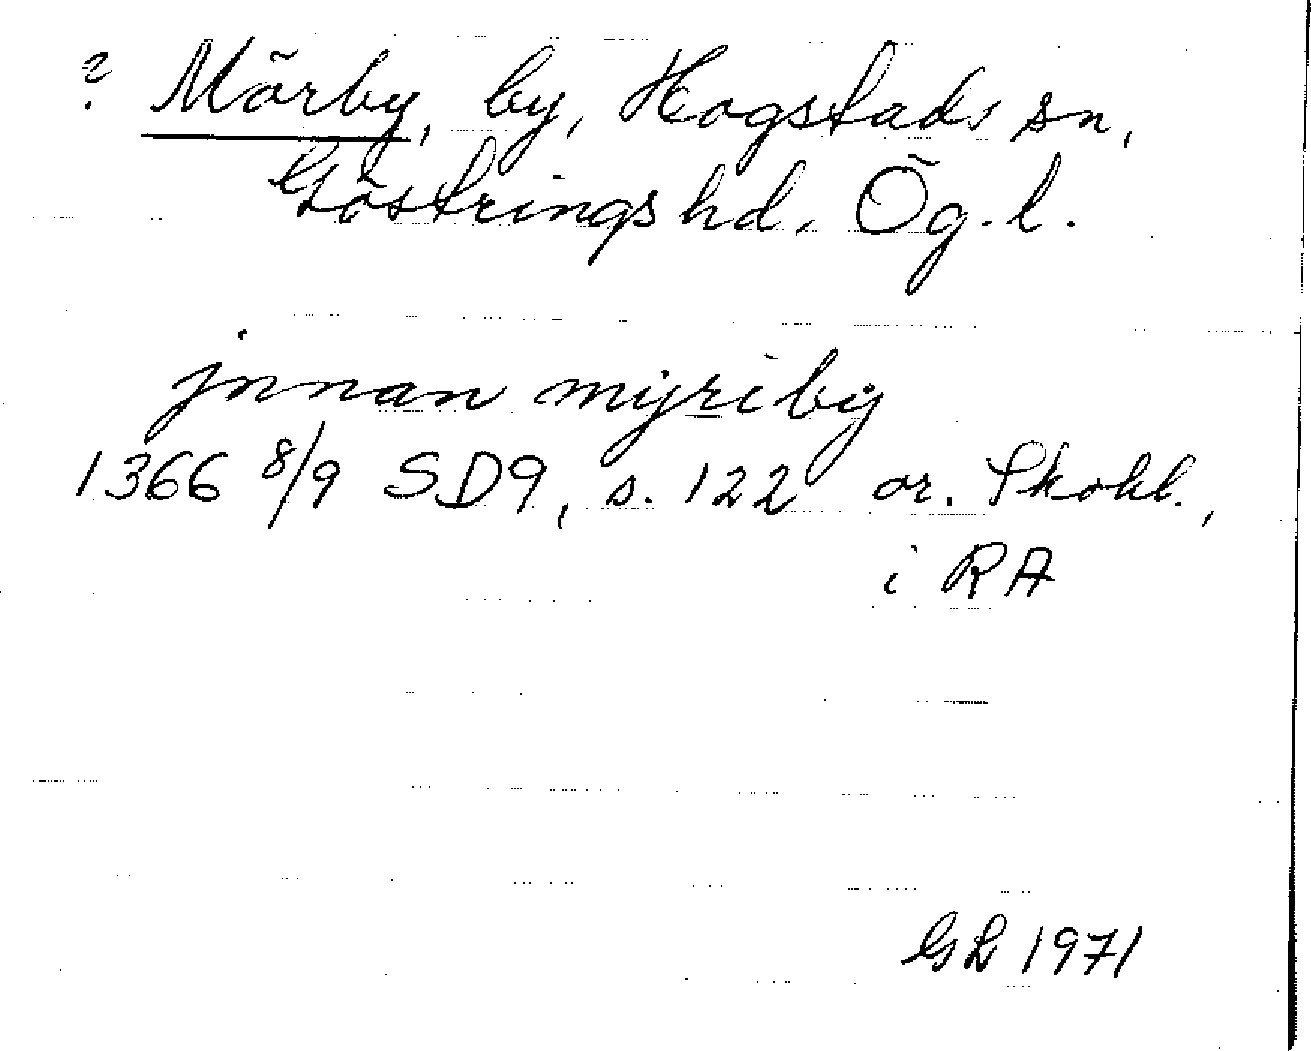 ? Mörby, by, Hogstads sn,
Göstrings hd, Ög. l.
jnnan mÿriby
1366 8/9 SD9, s. 122 or. Skokl.,
i RA
GL 1971